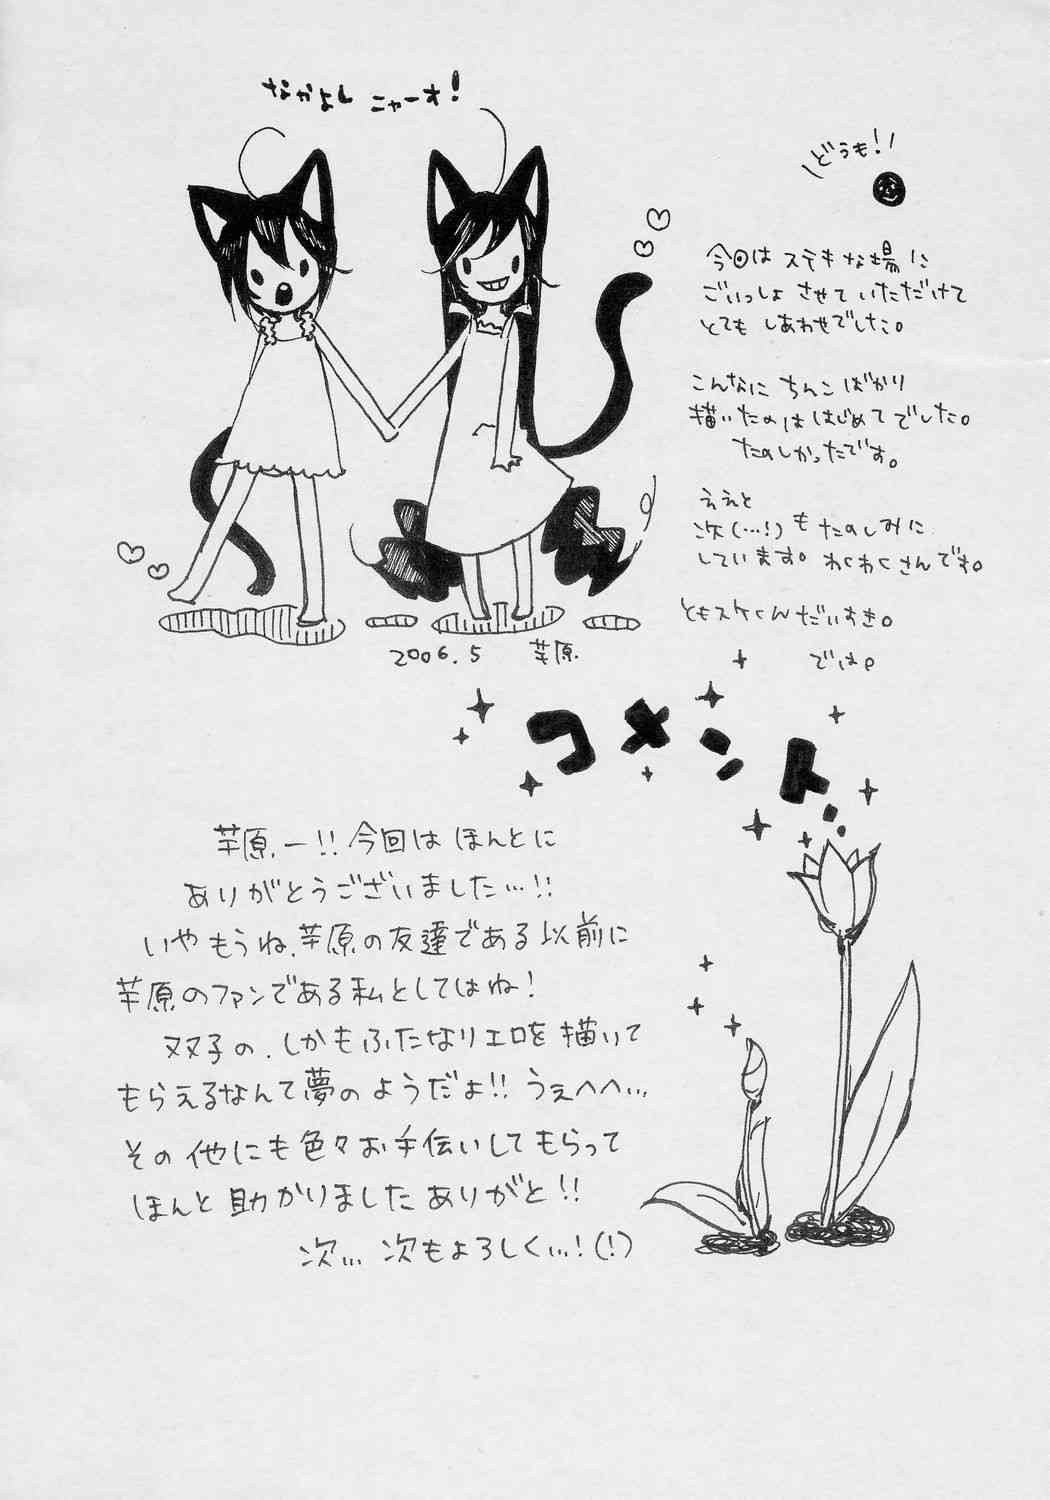 なかよし ニャーオ!
どうも!
今回は ステキな場に
ごいっしょ させて いただけて
とても しあわせでした。
こんなに ちんこ ばかり
描いたのは はじめて でした。
たのしかったです。
ええと
次(…!)も たのしみに
しています。 わくわくさんです。
ともスケくん だいすき。
では。
2006.5 芋原.
コメント.
芋原ー!! 今回は ほんとに
ありがとうございました…!!
いや もうね、芋原の友達である以前に
芋原のファンである私としてはね!
双子の、しかもふたなりエロを描いて
もらえるなんて夢のようだよ!! うえへへ…
その他にも色々お手伝いしてもらって
ほんと助かりました ありがと!!
次… 次もよろしく…!(!)